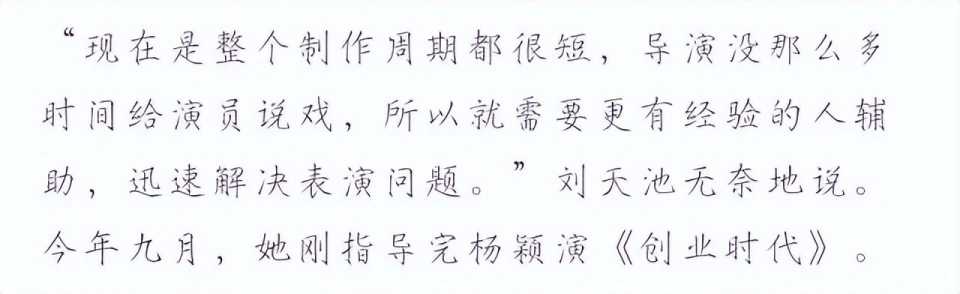 “现在是整个制作周期都很短，导演没那么多
时间给演员说戏，所以就需要更有经验的人辅
助，迅速解决表演问题。”刘天池无奈地说。
今年九月，她刚指导完杨颖演《创业时代》。